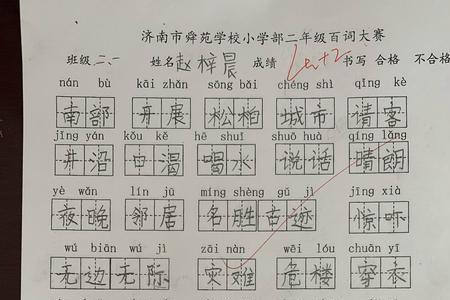 济南市舜苑学校小学部二年级百词大赛
班级 二、一 姓名 赵梓晨 成绩 书写 合格 不合格
nán bù kāi zhǎn sōng bǎi chéng shì qǐng kè
南部 开展 松柏 城市 请客
jǐng yán kǒu kě hē shuǐ shuō huà qíng lǎng
井沿 口渴 喝水 说话 晴朗
yè wǎn lín jū míng shèng gǔ jì
夜晚 邻居 名胜古迹 惊吓
jīng xià
wú biān wú jì zāi nàn wēi lóu chuān yī
无边无际 灾难 危楼 穿衣